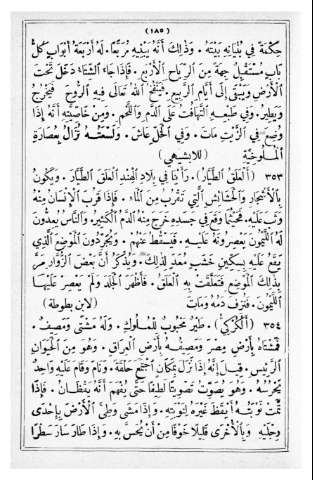 (١٨٥)
حِكْمَةٌ فِي بُنْيَانِهِ بَيْتَهُ. وَذٰلِكَ أَنَّهُ يَبْنِيهِ مُرَبَّعًا. لَهُ أَرْبَعَةُ أَبْوَابٍ كُلُّ
بَابٍ مُسْتَقْبِلٌ جِهَةً مِنَ الرِّيَاحِ الْأَرْبَعِ. فَإِذَا جَاءَ الشِّتَاءُ دَخَلَ تَحْتَ
الْأَرْضِ وَيَبْقَى إِلَى أَيَّامِ الرَّبِيعِ. فَيَنْفُخُ اللهُ تَعَالَى فِيهِ الرُّوحَ فَيَخْرُجُ
وَيَطِيرُ. وَفِي طَبْعِهِ التَّهَافُتُ عَلَى الدَّمِ وَاللَّحْمِ. وَمِنْ خَاصِّيَّتِهِ أَنَّهُ إِذَا
وُضِعَ فِي الزَّيْتِ مَاتَ. وَفِي الْخَلِّ عَاشَ. وَلَسْعَتُهُ تُزَالُ بِعُصَارَةِ
الْمُلُوخِيَّةِ (للابشيهي)
٣٥٣ (أَلْعَلَقُ الطَّيَّارُ). رَأَيْنَا فِي بِلَادِ الْهِنْدِ الْعَلَقَ الطَّيَّارَ. وَيَكُونُ
بِالْأَشْجَارِ وَالْحَشَائِشِ الَّتِي تَقْرُبُ مِنَ الْمَاءِ. فَإِذَا قَرُبَ الْإِنْسَانُ مِنْهُ
وَثَبَ عَلَيْهِ. فَحَيْثُمَا وَقَعَ فِي جَسَدِهِ خَرَجَ مِنْهُ الدَّمُ الْكَثِيرُ. وَالنَّاسُ يُعِدُّونَ
لَهُ اللَّيْمُونَ يَعْصِرُونَهُ عَلَيْهِ. فَيَسْقُطُ عَنْهُمْ. وَيُجَرِّدُونَ الْمَوْضِعَ الَّذِي
وَقَعَ عَلَيْهِ بِسِكِّينِ خَشَبٍ مُعَدٍّ لِذٰلِكَ. وَيُذْكَرُ أَنَّ بَعْضَ الزُّوَّارِ مَرَّ
بِذٰلِكَ الْمَوْضِعِ فَتَعَلَّقَتْ بِهِ الْعَلَقُ. فَأَظْهَرَ الْجَلَدَ وَلَمْ يَعْصِرْ عَلَيْهَا
اللَّيْمُونَ. فَنُزِفَ دَمُهُ وَمَاتَ (لابن بطوطة)
٣٥٤ (أَلْكُرْكِيُّ). طَيْرٌ مَحْبُوبٌ لِلْمُلُوكِ. وَلَهُ مَشْتًى وَمَصِيفٌ.
فَمَشْتَاهُ بِأَرْضِ مِصْرَ وَمَصِيفُهُ بِأَرْضِ الْعِرَاقِ. وَهُوَ مِنَ الْحَيَوَانِ
الرَّئِيسِ. قِيلَ إِنَّهُ إِذَا نَزَلَ بِمَكَانٍ اجْتَمَعَ حَلْقَةً. وَنَامَ وَقَامَ عَلَيْهِ وَاحِدٌ
يَحْرُسُهُ. وَهُوَ يُصَوِّتُ تَصْوِيتًا لَطِيفًا حَتَّى يُفْهَمَ أَنَّهُ يَقْظَانُ. فَإِذَا
تَمَّتْ نَوْبَتُهُ أَيْقَظَ غَيْرَهُ لِنَوْبَتِهِ. وَإِذَا مَشَى وَطِئَ الْأَرْضَ بِإِحْدَى
رِجْلَيْهِ وَبِالْأُخْرَى قَلِيلًا خَوْفًا مِنْ أَنْ يُحَسَّ بِهِ. وَإِذَا طَارَ سَارَ سَطْرًا